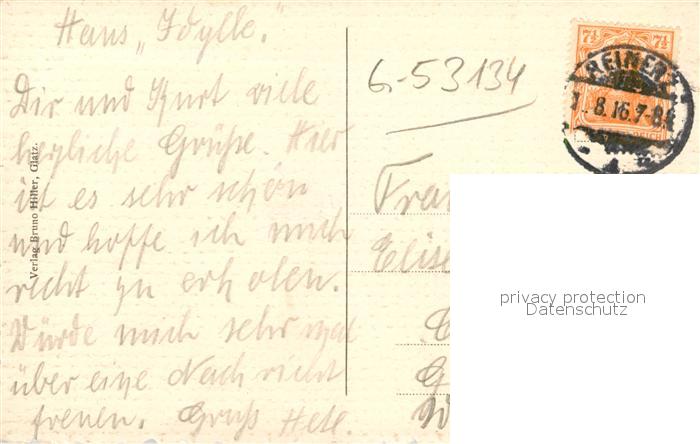 Haus „Idylle."
Dir und Kurt viele
herzliche Grüße. Hier
ist es sehr schön
und hoffe ich mich
recht zu erholen.
Würde mich sehr
über eine Nachricht
freuen. Gruß
Verlag Bruno Hiller, Glatz.
6-53134
7½ 7½
REINERZ
8.16.7-8
REICH
privacy protection
Datenschutz